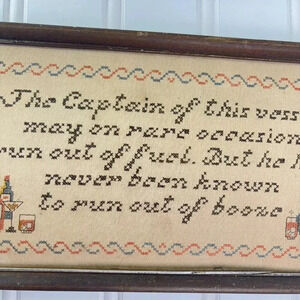 The Captain of this vess
may on rare occasion
run out of fuel. But he h
never been known
to run out of booze